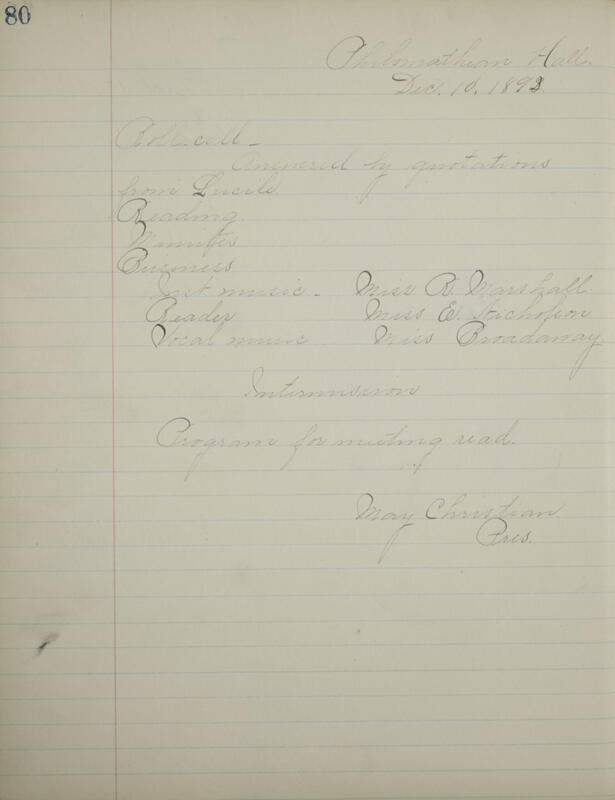 80
Philomathian Hall.
Dec. 10. 1892
Roll-call -
Answered by quotations
from Lucile
Reading
Minutes
Business
Inst music - Miss R. Marshall
Reader Miss E. Nicholson
Vocal music Miss Broadaway
Intermission
Program for meeting read.
May Christian
Pres.